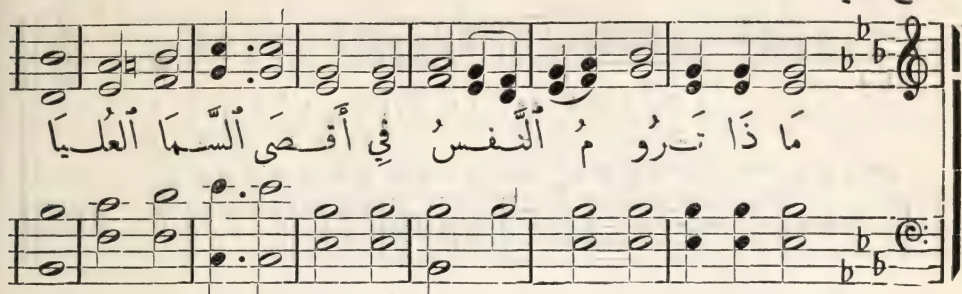 مَا ذَا تَــرُو مُ ٱلنَّـفـسُ فِي أَقـــصَى ٱلسَّــمَا ٱلعُلــيَا